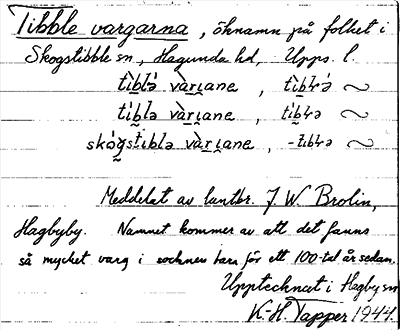 Tibble vargarna, öknamn på folket i
Skogstibble sn, Hagunda hd, Upps. l.
tìb̥lə́ vàrɩane, tìb̥ɩrə́ ~
tíb̥lə vàrɩane, tíb̥ɩrə ~
skóg̥stiblə vàrɩane, -tib̥ɩrə ~
Meddelat av lantbr. J. W. Brolin,
Hagbyby. Namnet kommer av att det fanns
så mycket varg i socknen bara för ett 100-tal år sedan.
Upptecknat i Hagby sn
K.-H. Tapper 1944.